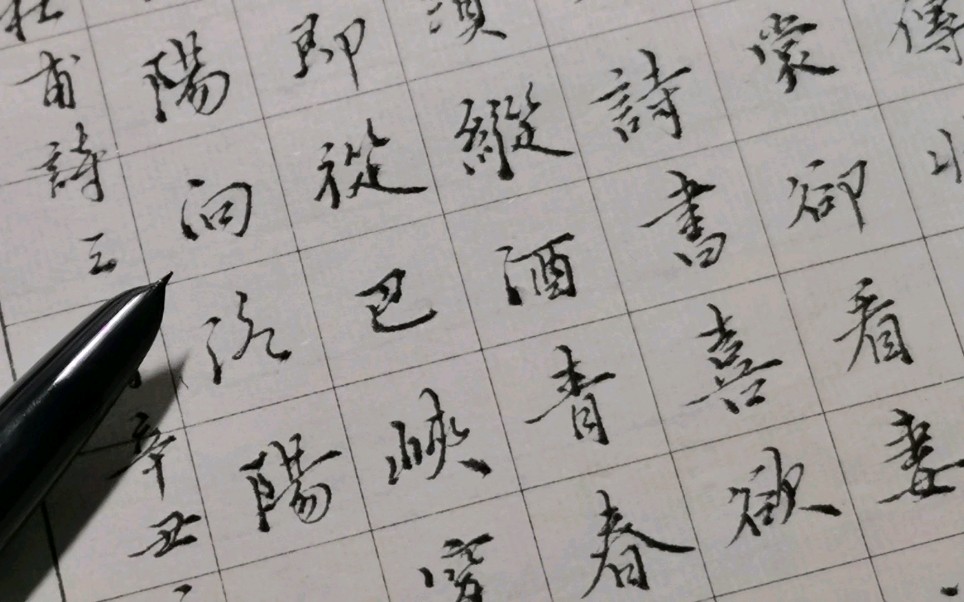 傳
裳卻看妻
詩書喜欲
須縱酒青春
即從巴峽穿
陽向洛陽
杜甫詩三
辛丑